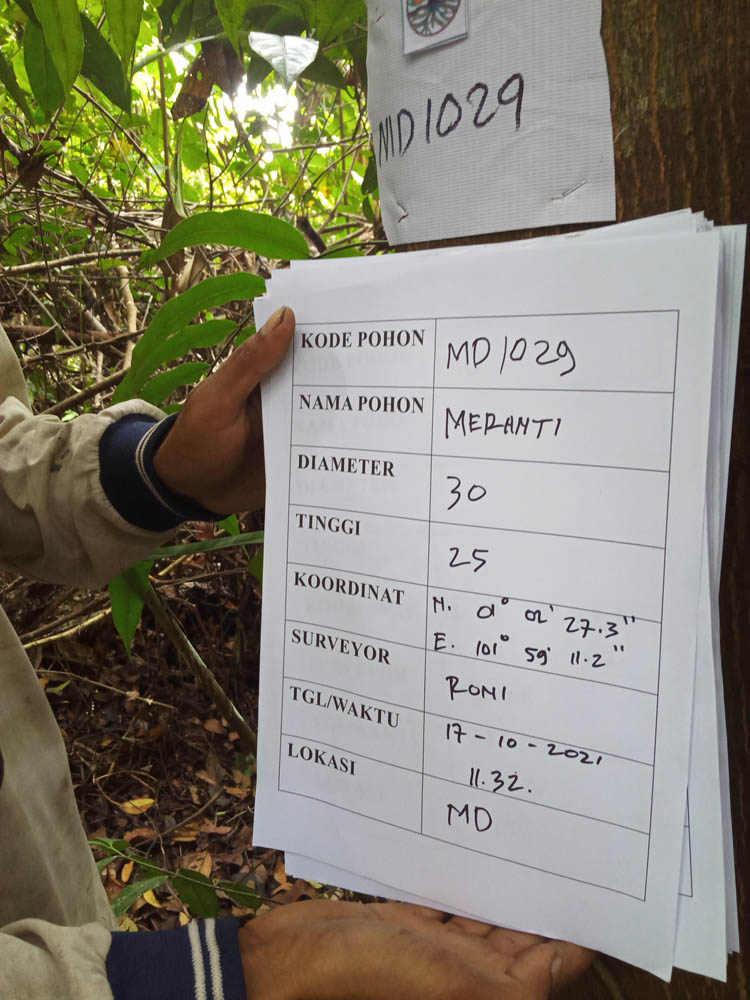 MD1029
KODE POHON MD1029
NAMA POHON MERANTI
DIAMETER 30
TINGGI 25
KOORDINAT N. 0° 02' 27.3"
E. 101° 59' 11.2"
SURVEYOR RONI
TGL/WAKTU 17-10-2021
11.32.
LOKASI MD